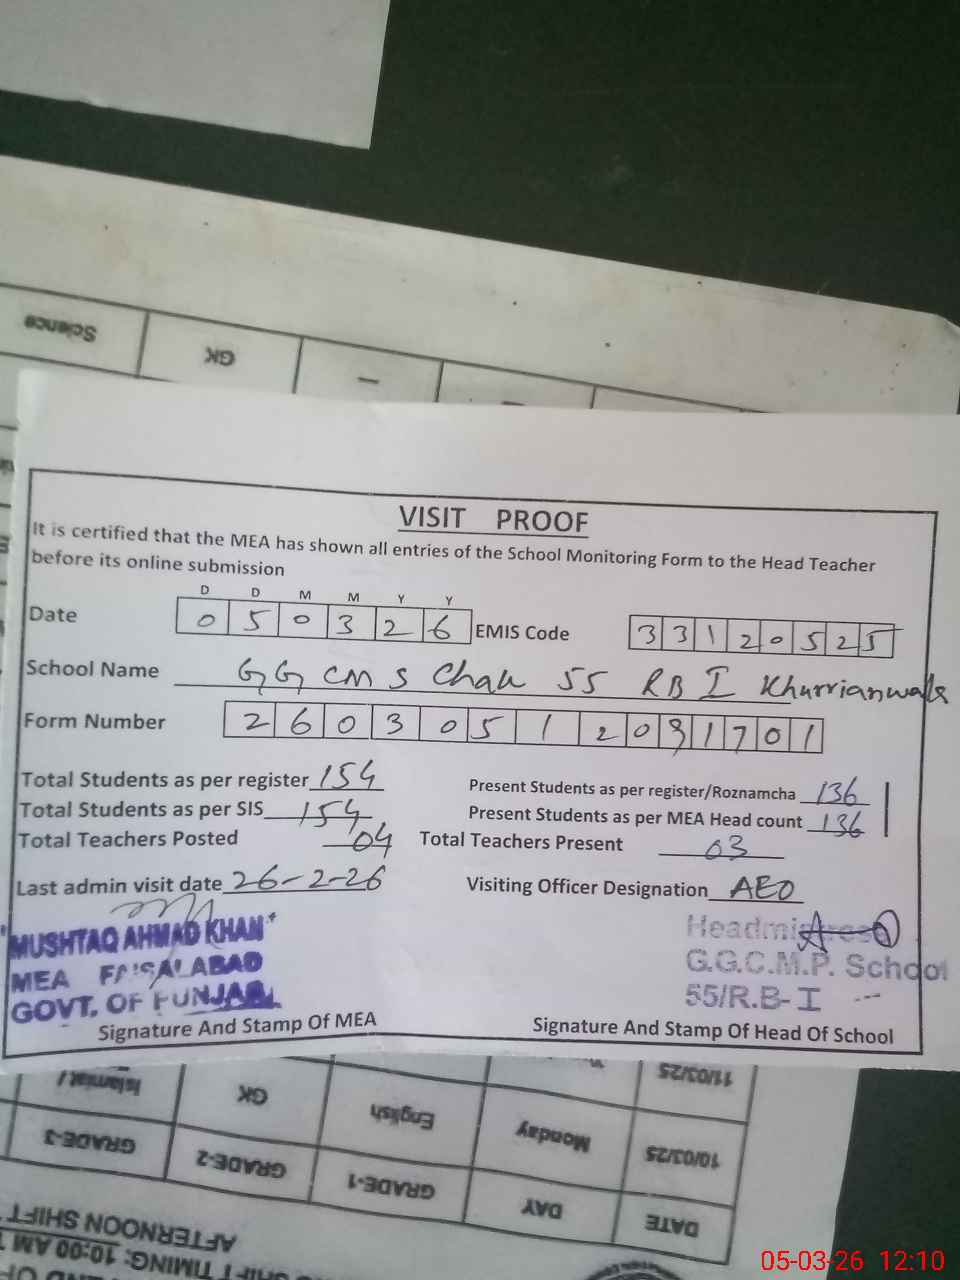 Science
GK
—
VISIT PROOF
It is certified that the MEA has shown all entries of the School Monitoring Form to the Head Teacher
before its online submission
D D M M Y Y
Date 0 5 0 3 2 6 EMIS Code 3 3 1 2 0 5 2 5
School Name GG CM S Chak 55 RB I Khurrianwala
Form Number 2 6 0 3 0 5 1 2 0 3 1 7 0 1
Total Students as per register 154 Present Students as per register/Roznamcha 136
Total Students as per SIS 154 Present Students as per MEA Head count 136
Total Teachers Posted 04 Total Teachers Present 03
Last admin visit date 26-2-26 Visiting Officer Designation AEO
MUSHTAQ AHMAD KHAN
MEA FAISALABAD
GOVT. OF PUNJAB
Signature And Stamp Of MEA
Headmistress
G.G.C.M.P. School
55/R.B-I
Signature And Stamp Of Head Of School
11/03/25
Islamiat/
GK
English
Monday
10/03/25
GRADE-3
GRADE-2
GRADE-1
DAY
DATE
AFTERNOON SHIFT
SHIFT TIMING: 10:00 AM
05-03-26 12:10